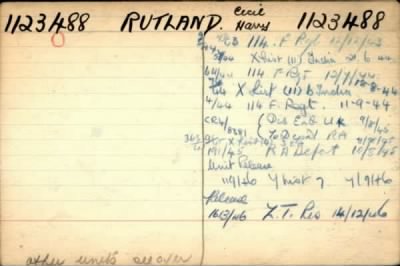 1123488 RUTLAND. Cecil Harry 1123488
114. F Rgt. 12/12/43
X list (II) India 21 6 44
64/44 114 F Rgt 12/7/44
X list (II) b India 8-44
4/44 114 F. Regt. 11-9-44
CR4/8381 (Dis Emb UK 9/4/45
(To Depot RA
191/45 RA Depot 10/5/45
Unit Release
119/46 Y list 7 7/9/46
Release
163/46 Z.T. Res 14/12/46
other units see over